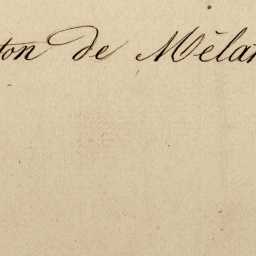 ton de Mêlan